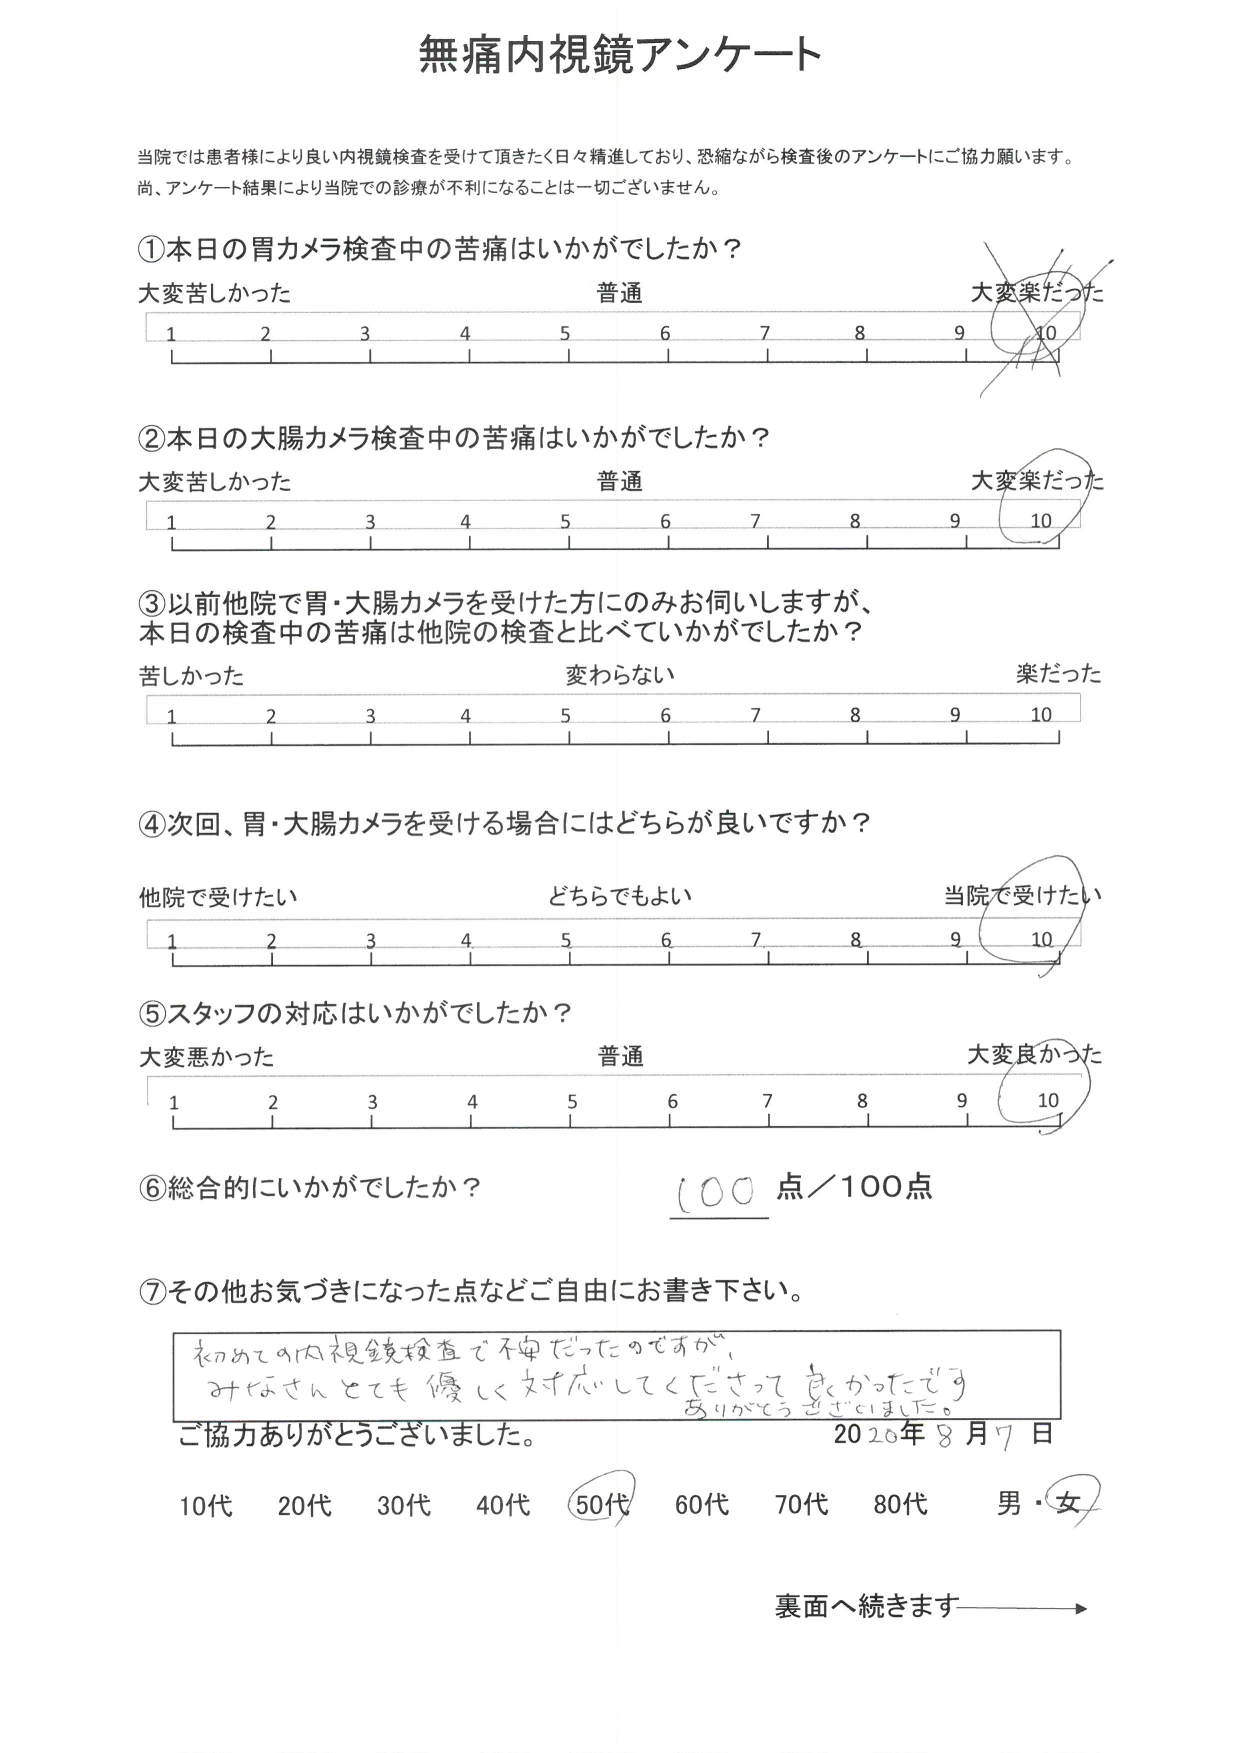 無痛内視鏡アンケート
当院では患者様により良い内視鏡検査を受けて頂きたく日々精進しており、恐縮ながら検査後のアンケートにご協力願います。
尚、アンケート結果により当院での診療が不利になることは一切ございません。
①本日の胃カメラ検査中の苦痛はいかがでしたか？
大変苦しかった 普通 大変楽だった
1 2 3 4 5 6 7 8 9 10
②本日の大腸カメラ検査中の苦痛はいかがでしたか？
大変苦しかった 普通 大変楽だった
1 2 3 4 5 6 7 8 9 10
③以前他院で胃・大腸カメラを受けた方にのみお伺いしますが、
本日の検査中の苦痛は他院の検査と比べていかがでしたか？
苦しかった 変わらない 楽だった
1 2 3 4 5 6 7 8 9 10
④次回、胃・大腸カメラを受ける場合にはどちらが良いですか？
他院で受けたい どちらでもよい 当院で受けたい
1 2 3 4 5 6 7 8 9 10
⑤スタッフの対応はいかがでしたか？
大変悪かった 普通 大変良かった
1 2 3 4 5 6 7 8 9 10
⑥総合的にいかがでしたか？ 100 点／100点
⑦その他お気づきになった点などご自由にお書き下さい。
初めての内視鏡検査で不安だったのですが、
みなさんとても優しく対応してくださって良かったです
ありがとうございました。
ご協力ありがとうございました。 2020年8月7日
10代 20代 30代 40代 50代 60代 70代 80代 男・女
裏面へ続きます